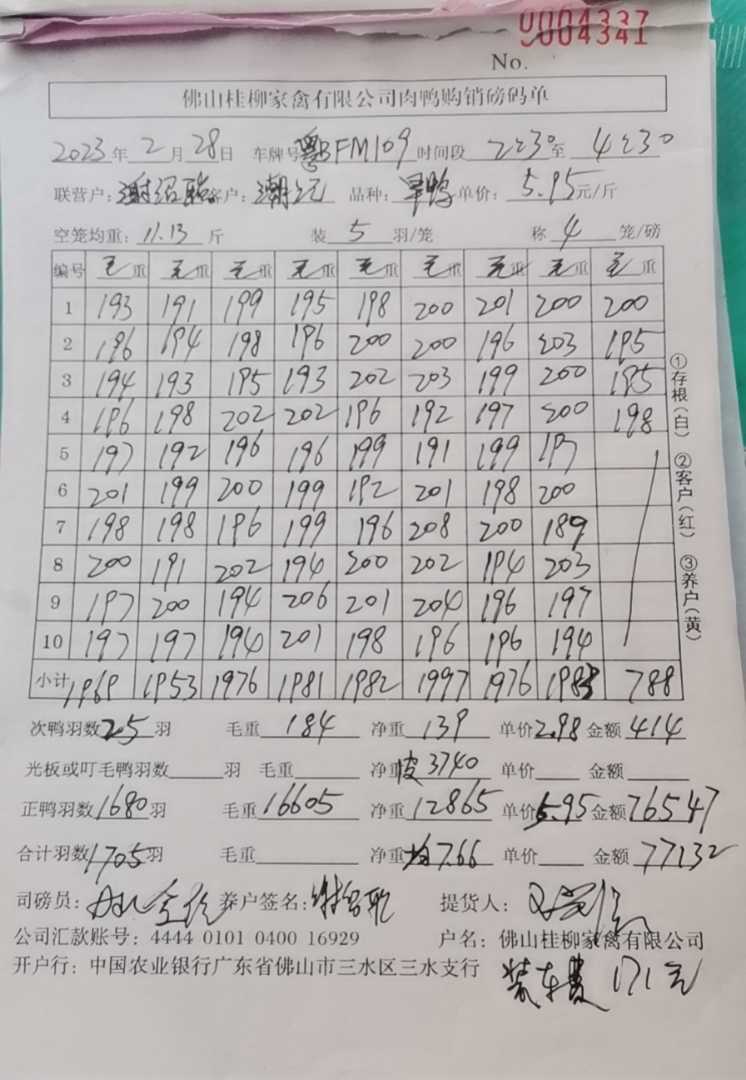 0004337
0004341
No.
佛山桂柳家禽有限公司肉鸭购销磅码单
2023年2月28日 车牌号粤BFM109时间段 2:30至 4:30
联营户: 客户: 品种: 鸭 单价: 5.95元/斤
空笼均重: 11.13 斤 装 5 羽/笼 称 4 笼/磅
编号 毛重 毛重 毛重 毛重 毛重 毛重 毛重 毛重 毛重
1 193 191 199 195 198 200 201 200 200
2 196 194 198 196 200 200 196 203 195
3 194 193 195 193 202 203 199 200 195
4 196 198 202 202 196 192 197 200 198
5 197 192 196 196 199 191 199 197
6 201 199 200 199 192 201 198 200
7 198 198 196 199 196 208 200 189
8 200 191 202 194 200 202 194 203
9 197 200 194 206 201 204 196 197
10 197 197 194 201 198 196 196 194
小计 1969 1953 1976 1981 1982 1997 1976 1983 788
①存根(白) ②客户(红) ③养户(黄)
次鸭羽数25羽 毛重 184 净重 139 单价2.98 金额 414
光板或叮毛鸭羽数 羽 毛重 净重皮3740 单价 金额
正鸭羽数1680羽 毛重16605 净重12865 单价5.95 金额76547
合计羽数1705羽 毛重 净重均7.66 单价 金额77132
司磅员: 养户签名: 提货人:
公司汇款账号: 4444 0101 0400 16929 户名: 佛山桂柳家禽有限公司
开户行: 中国农业银行广东省佛山市三水区三水支行
装车费 171元